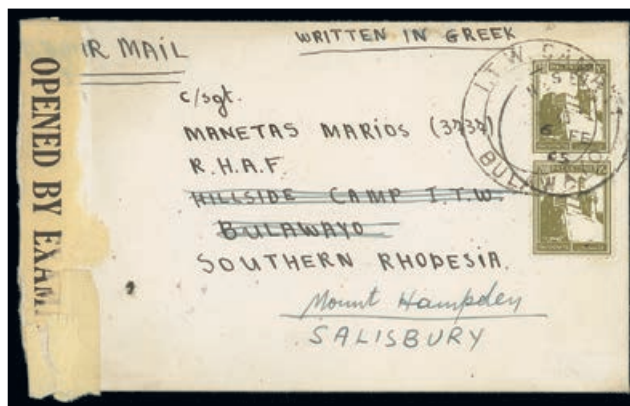 AIR MAIL
WRITTEN IN GREEK
c/sgt.
MANETAS MARIOS (3737)
R.H.A.F
HILLSIDE CAMP I.T.W.
BULAWAYO
SOUTHERN RHODESIA.
Mount Hampden
SALISBURY
OPENED BY EXAM
I.T.W. CAMP
BULAWAYO